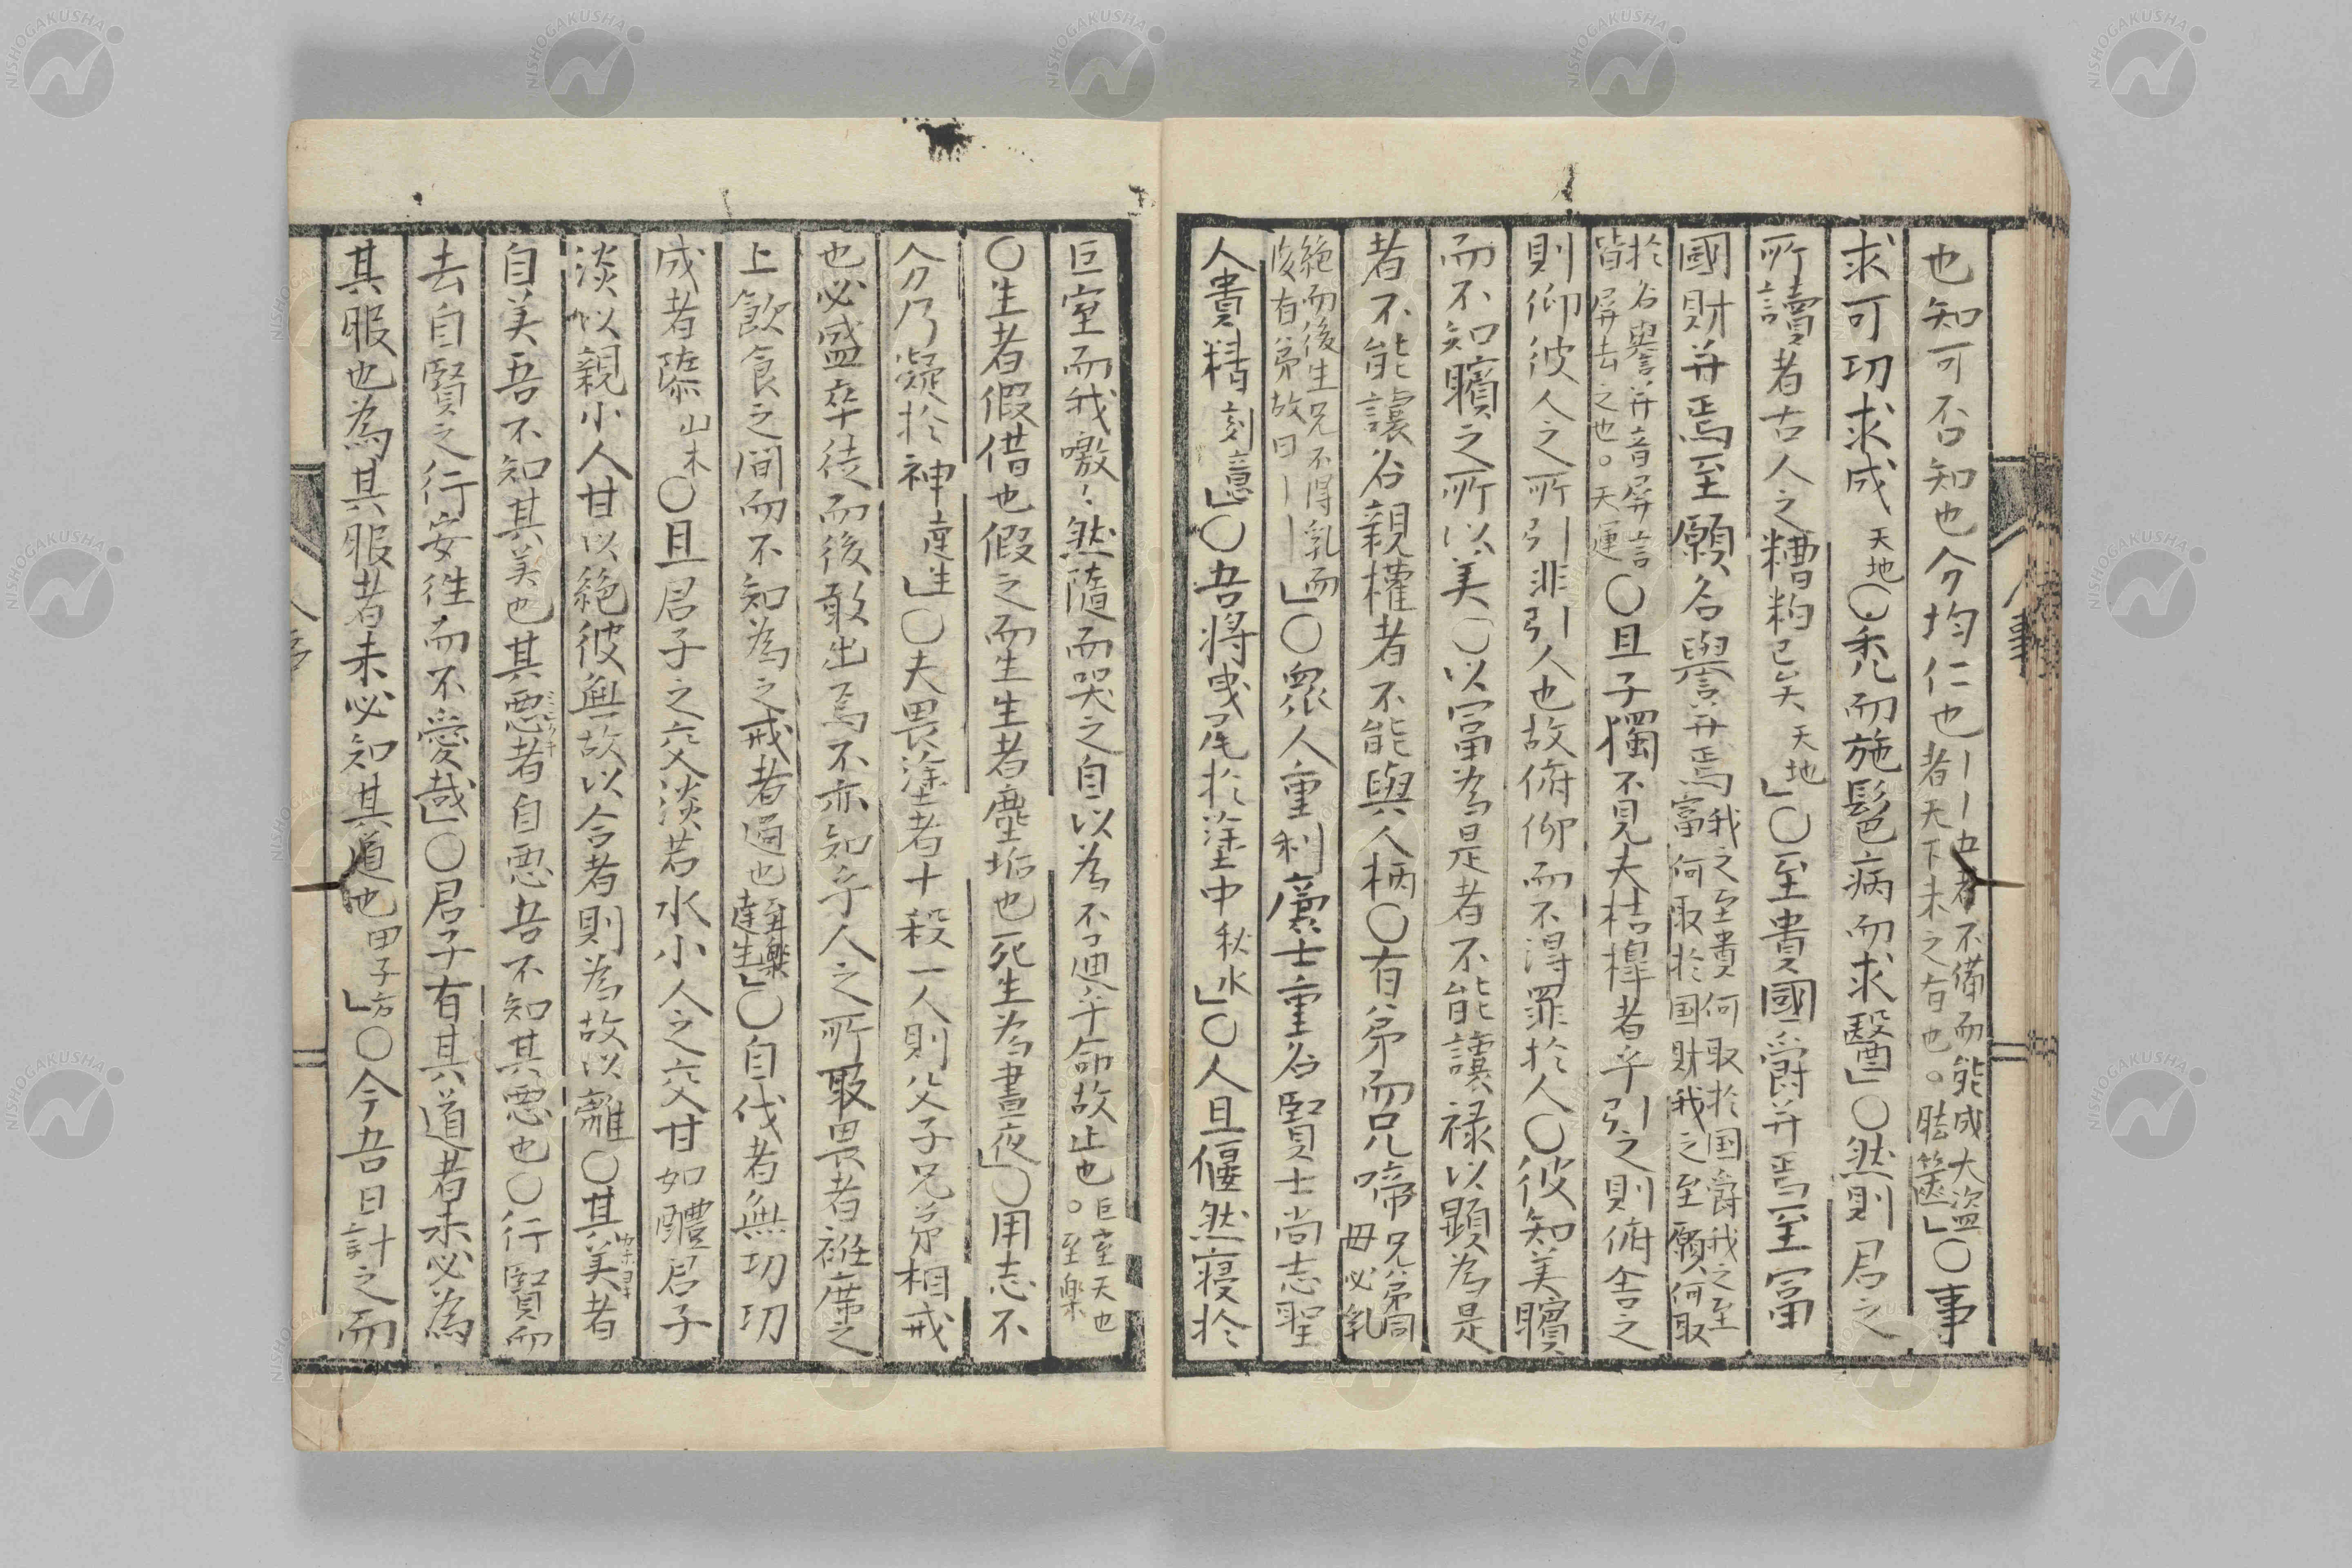 也知可否知也分均仁也｜｜五者不備而能成大盗者天下未之有也。胠篋」〇事
求可功求成天地〇禿而施髢病而求醫」〇然則君之
所讀者古人之糟粕已矣天地」〇至貴國爵并焉至富
國財并焉至願名譽并焉我之至貴何取於国爵我之至富何取於国財我之至願何取
於名譽并音屏言皆屏去之也。天運〇且子獨不見夫桔槹者乎引之則俯舎之
則仰彼人之所引非引人也故俯仰而不得罪於人〇彼知美矉
而不知矉之所以美〇以富為是者不能讓禄以顕為是
者不能讓名親權者不能與人柄〇有弟而兄啼兄弟同母必乳
絶而後生兄不得乳而後有弟故曰｜｜」〇衆人重利廉士重名賢士尚志聖
人貴精刻意」〇吾將曳尾於塗中秋水」〇人且偃然寝於
巨室而我噭〻然隨而哭之自以為不通乎命故止也巨室天也。至樂
〇生者假借也假之而生生者塵垢也死生為晝夜」〇用志不
分乃凝於神達生」〇夫畏塗者十殺一人則父子兄弟相戒
也必盛卒徒而後敢出焉不亦知乎人之所最畏者袵席之
上飲食之間而不知為之戒者過也至樂達生」〇自伐者無功功
成者隳山木〇且君子之交淡若水小人之交甘如醴君子
淡以親小人甘以絶彼無故以合者則為故以離〇其美者
自美吾不知其美也其悪者自悪吾不知其悪也〇行賢而
去自賢之行安徃而不愛哉」〇君子有其道者未必為
其服也為其服者未必知其道也田子方」〇今吾日計之而
人事
NISHOGAKUSHA